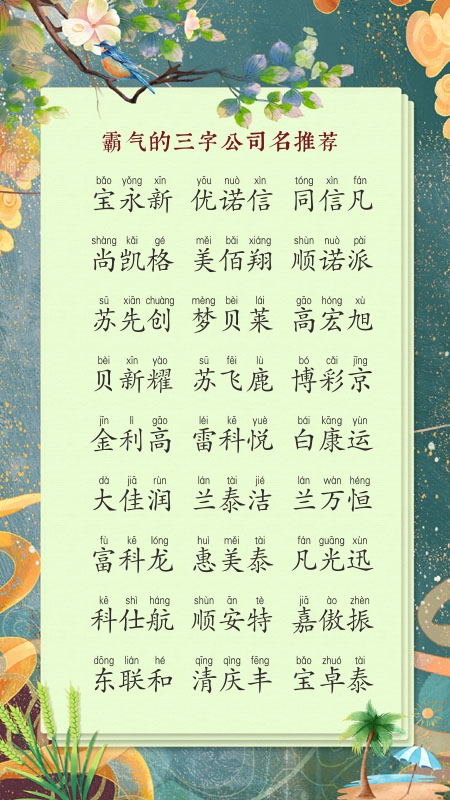 霸气的三字公司名推荐
bǎo yǒng xīn yōu nuò xìn tóng xìn fán
宝永新 优诺信 同信凡
shàng kǎi gé měi bǎi xiáng shùn nuò pài
尚凯格 美佰翔 顺诺派
sū xiān chuàng mèng bèi lái gāo hóng xù
苏先创 梦贝莱 高宏旭
bèi xīn yào sū fēi lù bó cǎi jīng
贝新耀 苏飞鹿 博彩京
jīn lì gāo léi kē yuè bái kāng yùn
金利高 雷科悦 白康运
dà jiā rùn lán tài jié lán wàn héng
大佳润 兰泰洁 兰万恒
fù kē lóng huì měi tài fán guāng xùn
富科龙 惠美泰 凡光迅
kē shì háng shùn ān tè jiā ào zhèn
科仕航 顺安特 嘉傲振
dōng lián hé qīng qìng fēng bǎo zhuó tài
东联和 清庆丰 宝卓泰